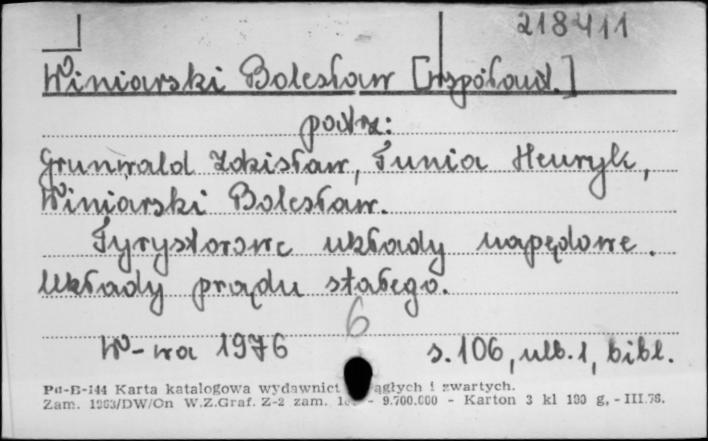 218411
Winiarski Bolesław [współaut.]
patrz:
Grunwald Zdzisław, Tunia Henryk,
Winiarski Bolesław.
Tyrystorowe układy napędowe.
Układy prądu stałego.
6
W-wa 1976 s. 106, nlb. 1, bibl.
Pu-B-144 Karta katalogowa wydawnict ągłych i zwartych.
Zam. 1963/DW/On W.Z.Graf. Z-2 zam. - 9.700.000 - Karton 3 kl 190 g, - III.76.